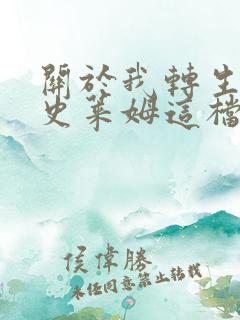 關於我轉生
史萊姆這檔
侯偉勝
未经同意禁止转载